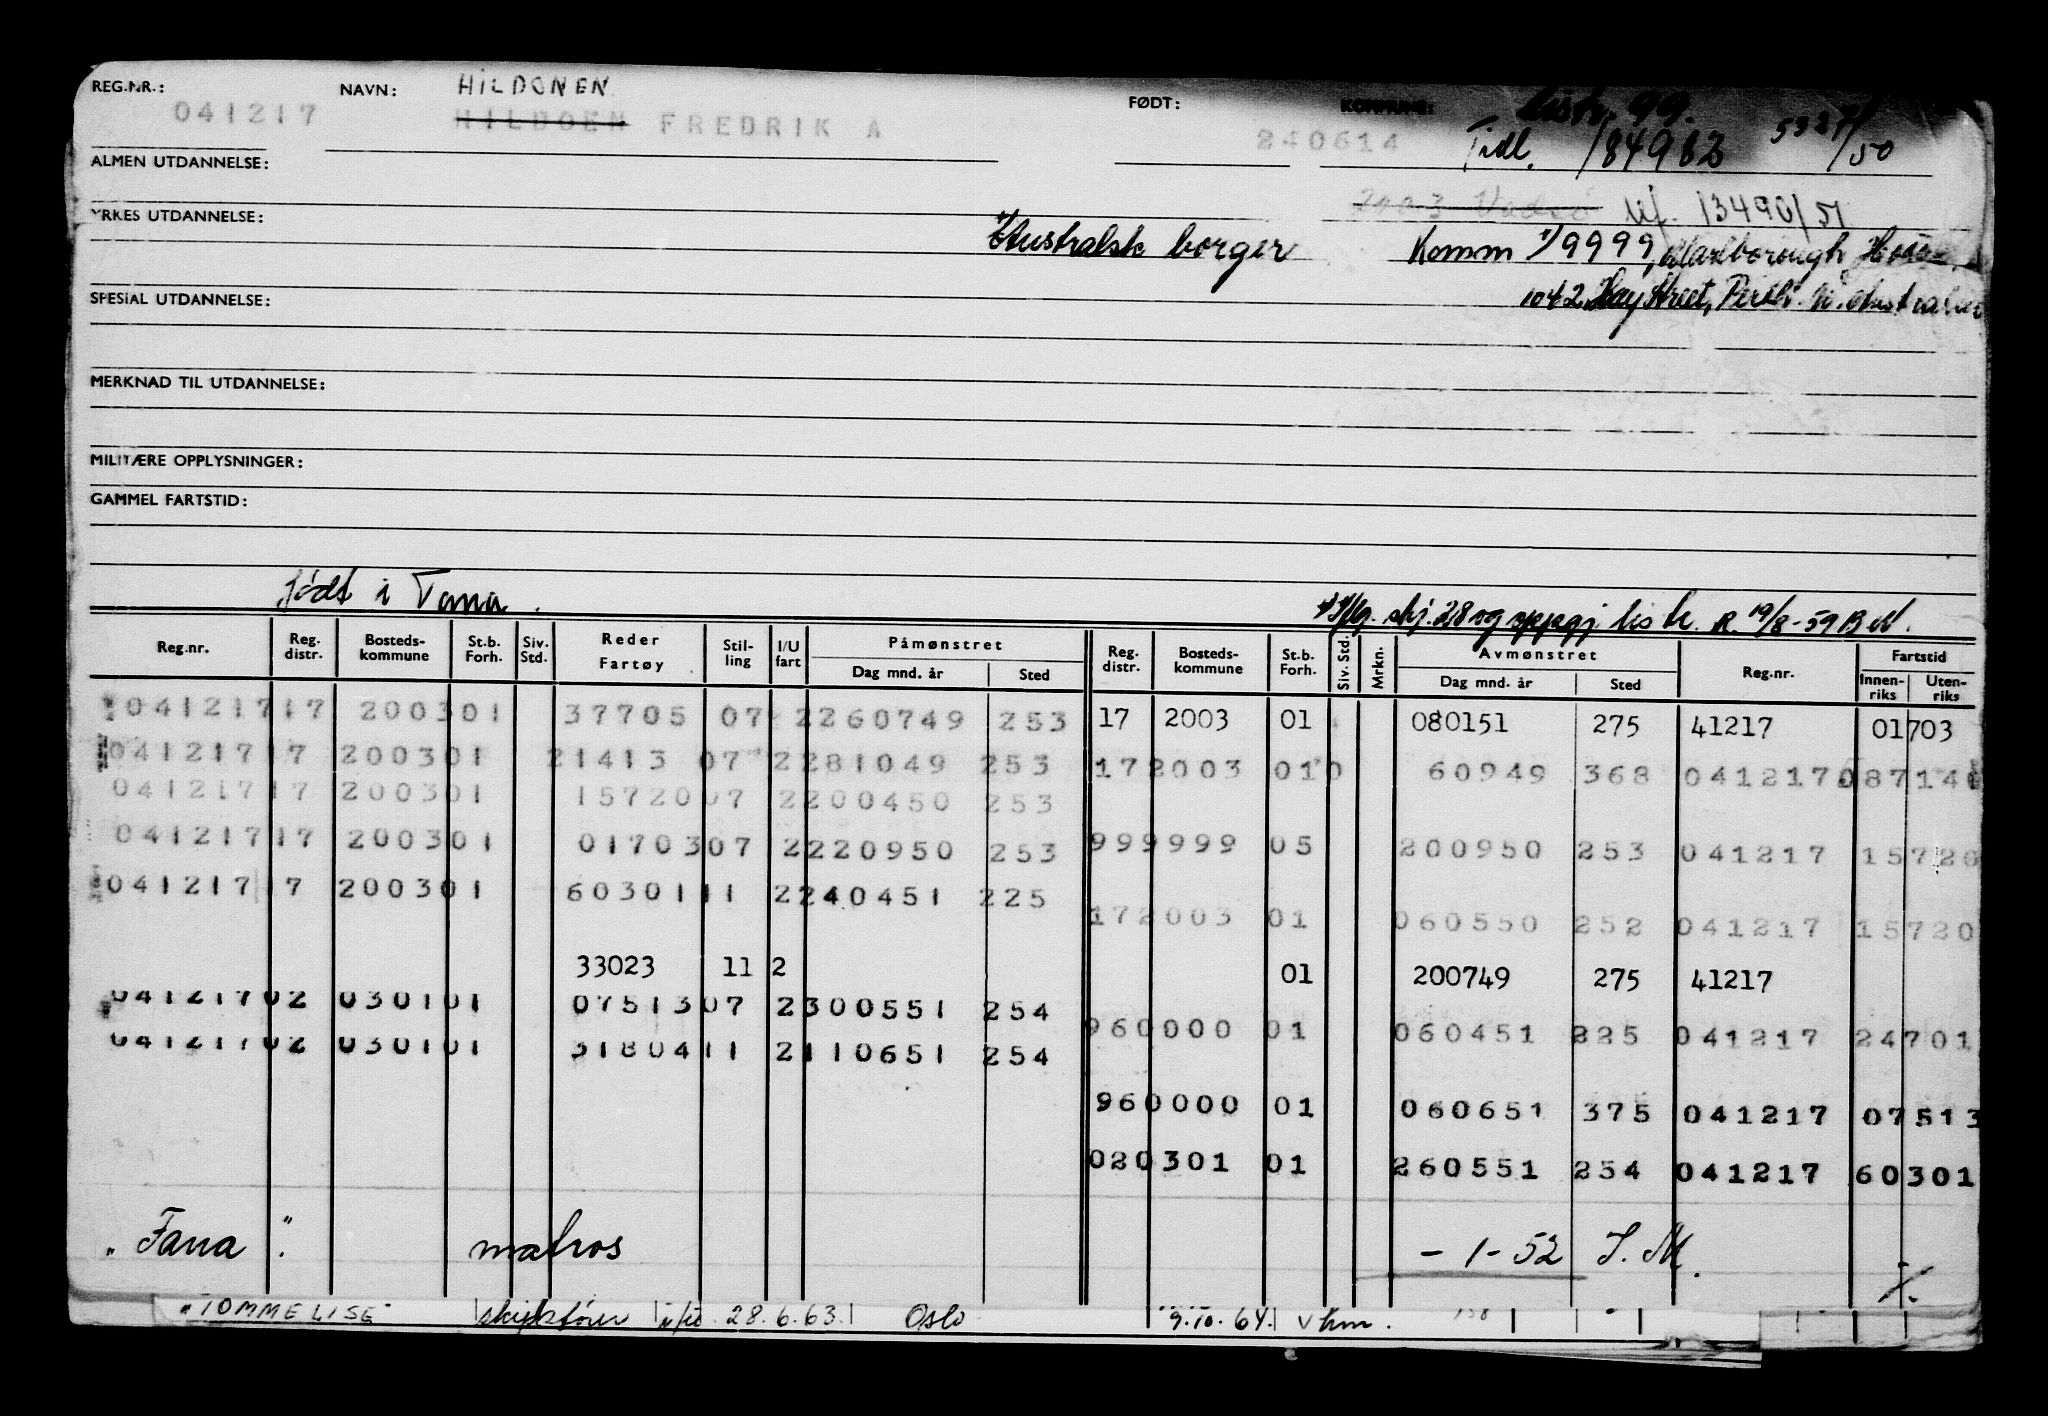 REG.NR.: 041217 NAVN: HILDONEN FØDT: 240614 KOMMUNE: Distr. 99.
HILDOEN FREDRIK A Tidl. 184982 5327/50
ALMEN UTDANNELSE:
2003 Vadsø 13490/51
YRKES UTDANNELSE:
Australsk borger Komm 9999, Marlborough House
SPESIAL UTDANNELSE: 1042 Hay Street, Perth. W. Australia
MERKNAD TIL UTDANNELSE:
MILITÆRE OPPLYSNINGER:
GAMMEL FARTSTID:
født i Tana. skj. 28 og oppgj. liste. R. 19/8-59
Reg.nr. Reg. distr. Bosteds-kommune St.b. Forh. Siv. Std. Reder Fartøy Stil-ling I/U fart Påmønstret Dag mnd. år Sted Reg. distr. Bosteds-kommune St.b. Forh. Siv. Std. Mrkn. Avmønstret Dag mnd. år Sted Reg.nr. Fartstid Innen-riks Uten-riks
041217 17 2003 01 37705 07 2 260749 253 17 2003 01 080151 275 41217 01703
041217 17 2003 01 21413 07 2 281049 253 17 2003 01 0 60949 368 041217 08714
041217 17 2003 01 15720 07 2 200450 253
041217 17 2003 01 01703 07 2 220950 253 99 9999 05 200950 253 041217 15720
041217 17 2003 01 60301 11 2 240451 225
17 2003 01 060550 252 041217 15720
33023 11 2 01 200749 275 41217
041217 02 0301 01 07513 07 2 300551 254
96 0000 01 060451 225 041217 24701
041217 02 0301 01 31804 11 2 110651 254
96 0000 01 060651 375 041217 07513
02 0301 01 260551 254 041217 60301
"Fana". matros - 1 - 52 J. M.
"TOMMELISE" 28.6.63. Oslo 9.10.64.